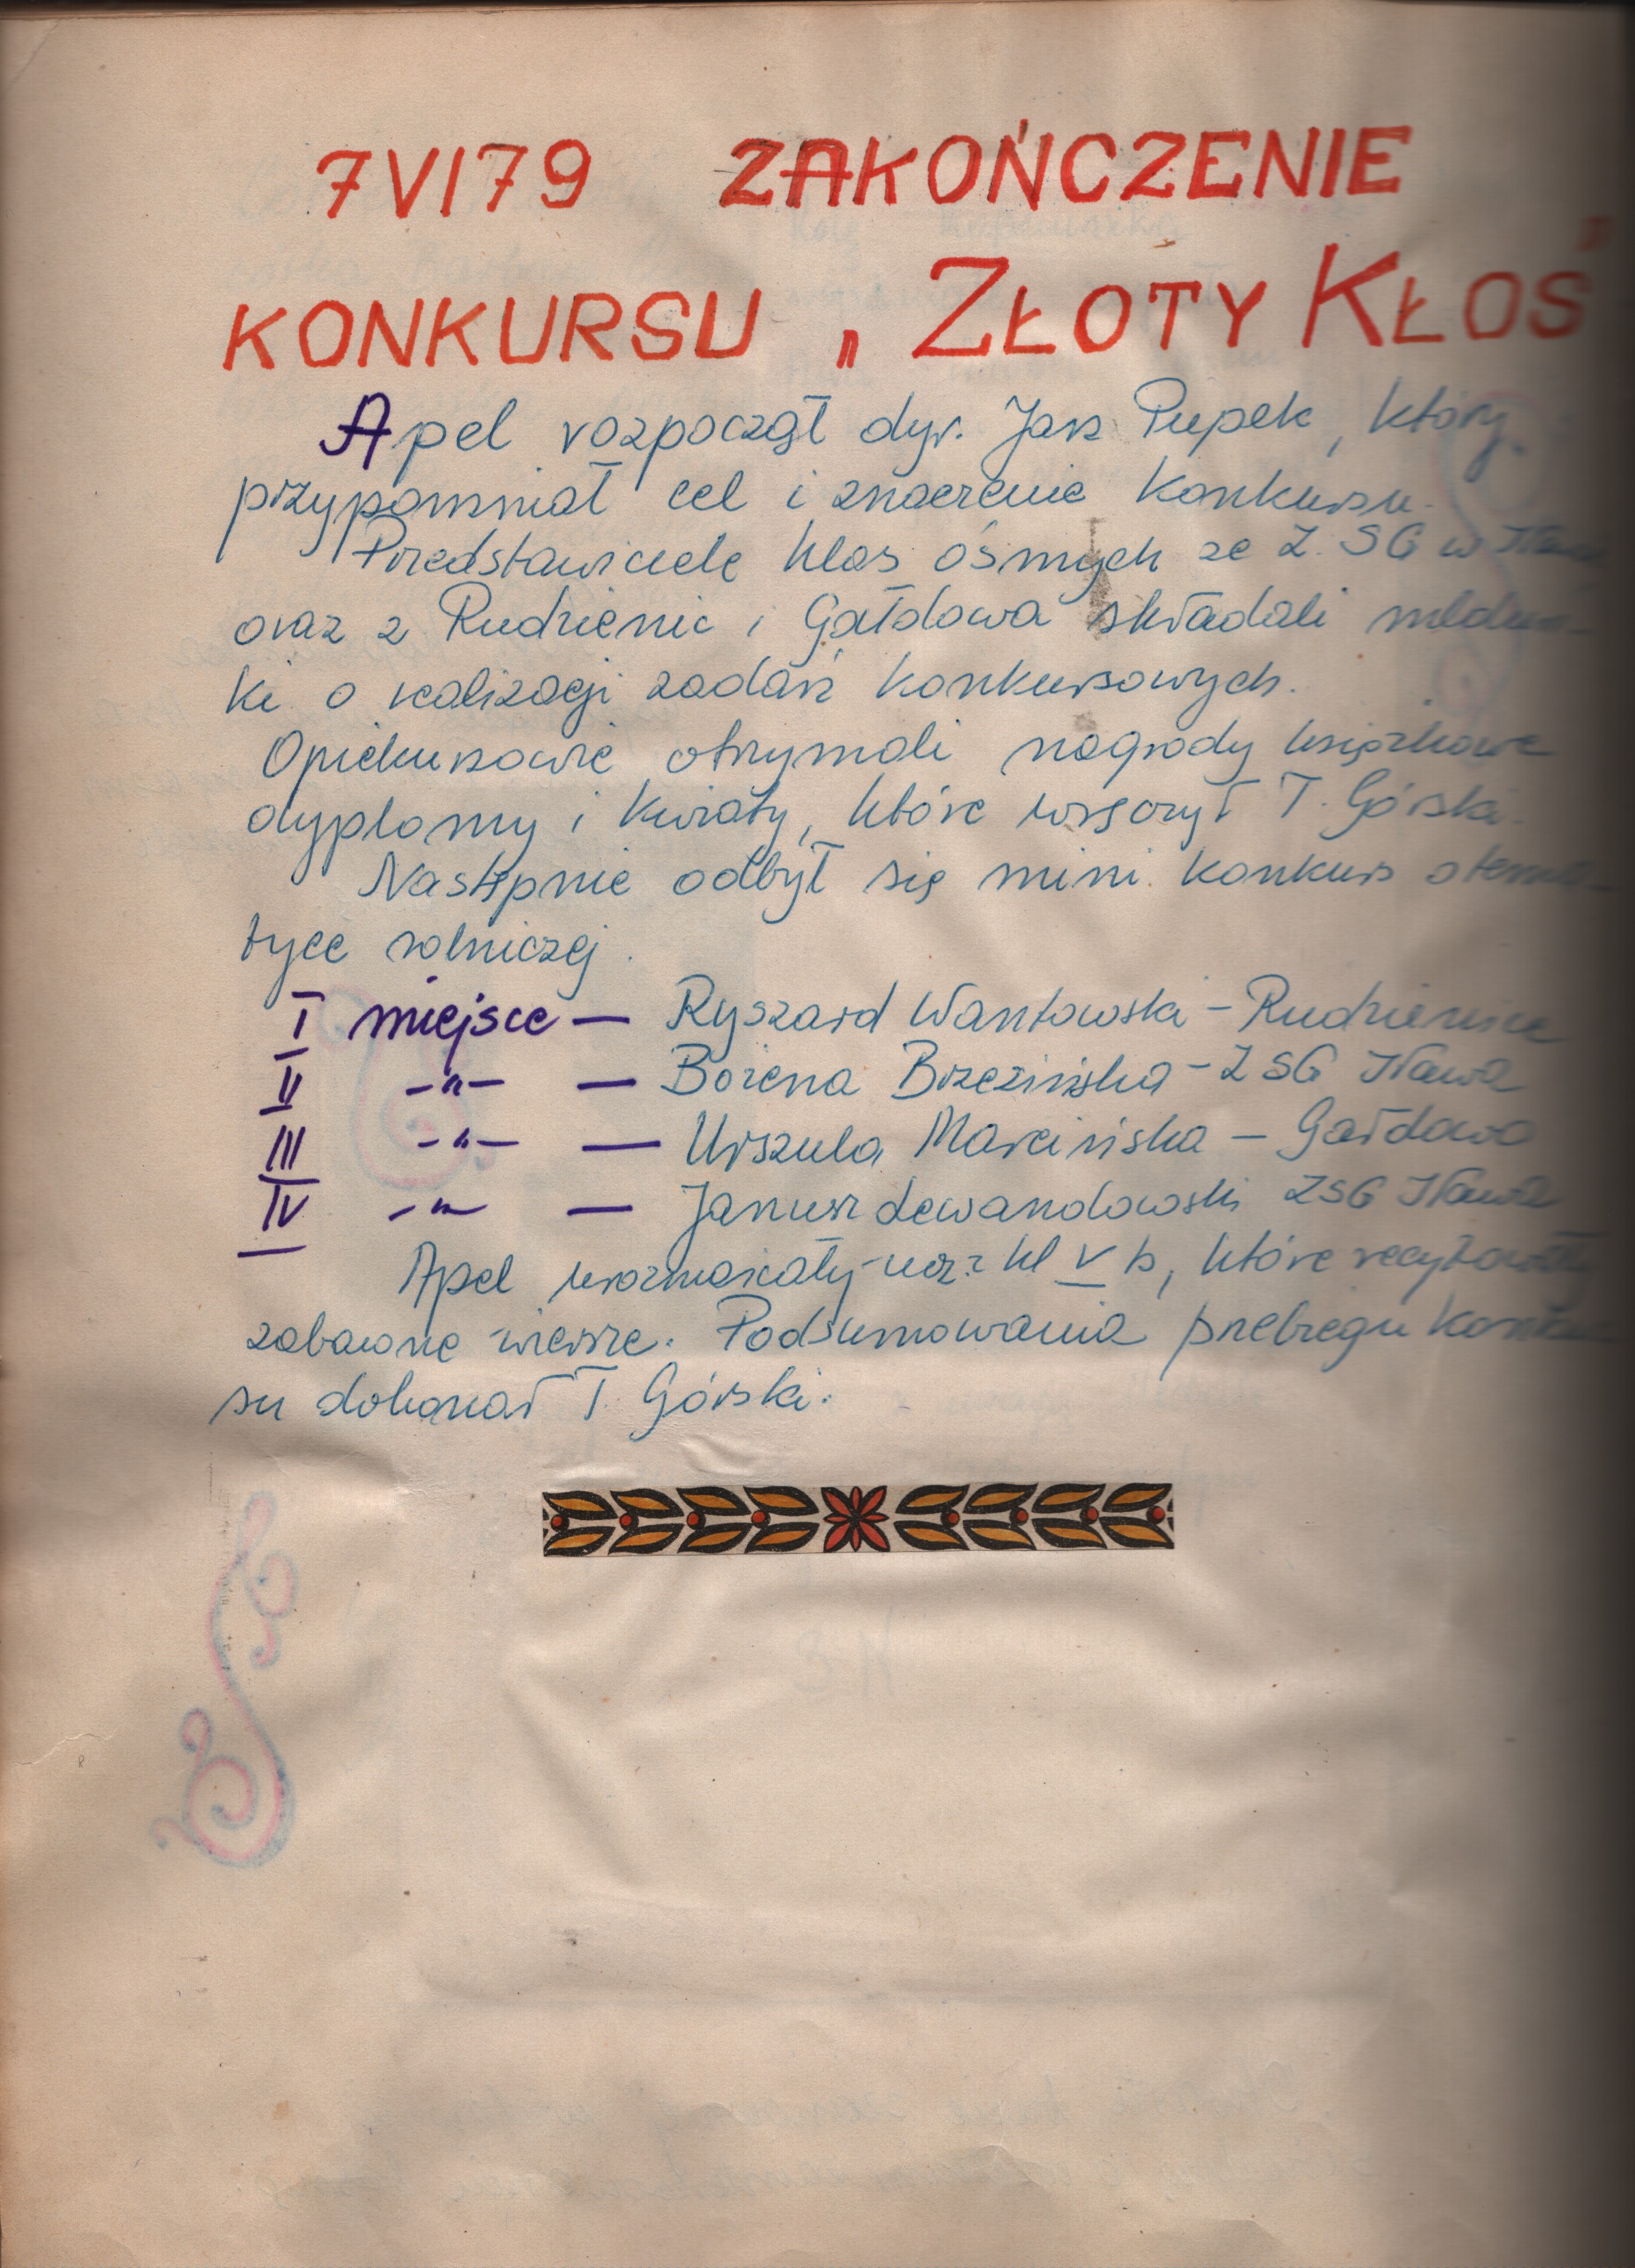 7 VI 79 ZAKOŃCZENIE
KONKURSU „ZŁOTY KŁOS"
Apel rozpoczął dyr. Jan Pupek, który
przypomniał cel i znaczenie konkursu.
Przedstawiciele klas ósmych ze Z. SG w Iławie
oraz z Rudzienic i Gałdowa składali meldun-
ki o realizacji zadań konkursowych.
Opiekunowie otrzymali nagrody książkowe
dyplomy i kwiaty, które wręczył T. Górski.
Następnie odbył się mini konkurs o tema-
tyce rolniczej.
I miejsce — Ryszard Wantowski – Rudzienice
II –"– — Bożena Brzezińska – ZSG Iława
III –"– — Urszula Marcińska – Gałdowo
IV –"– — Janusz Lewandowski ZSG Iława
Apel urozmaicały ucz. kl V b, które recytowały
zabawne wiersze. Podsumowania przebiegu konkur
su dokonał T. Górski.